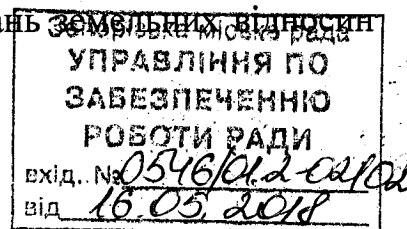 ань земельних відносин
Запорізька міська рада
УПРАВЛІННЯ ПО
ЗАБЕЗПЕЧЕННЮ
РОБОТИ РАДИ
вхід. № 0546/01.2-02/02
від 16.05.2018